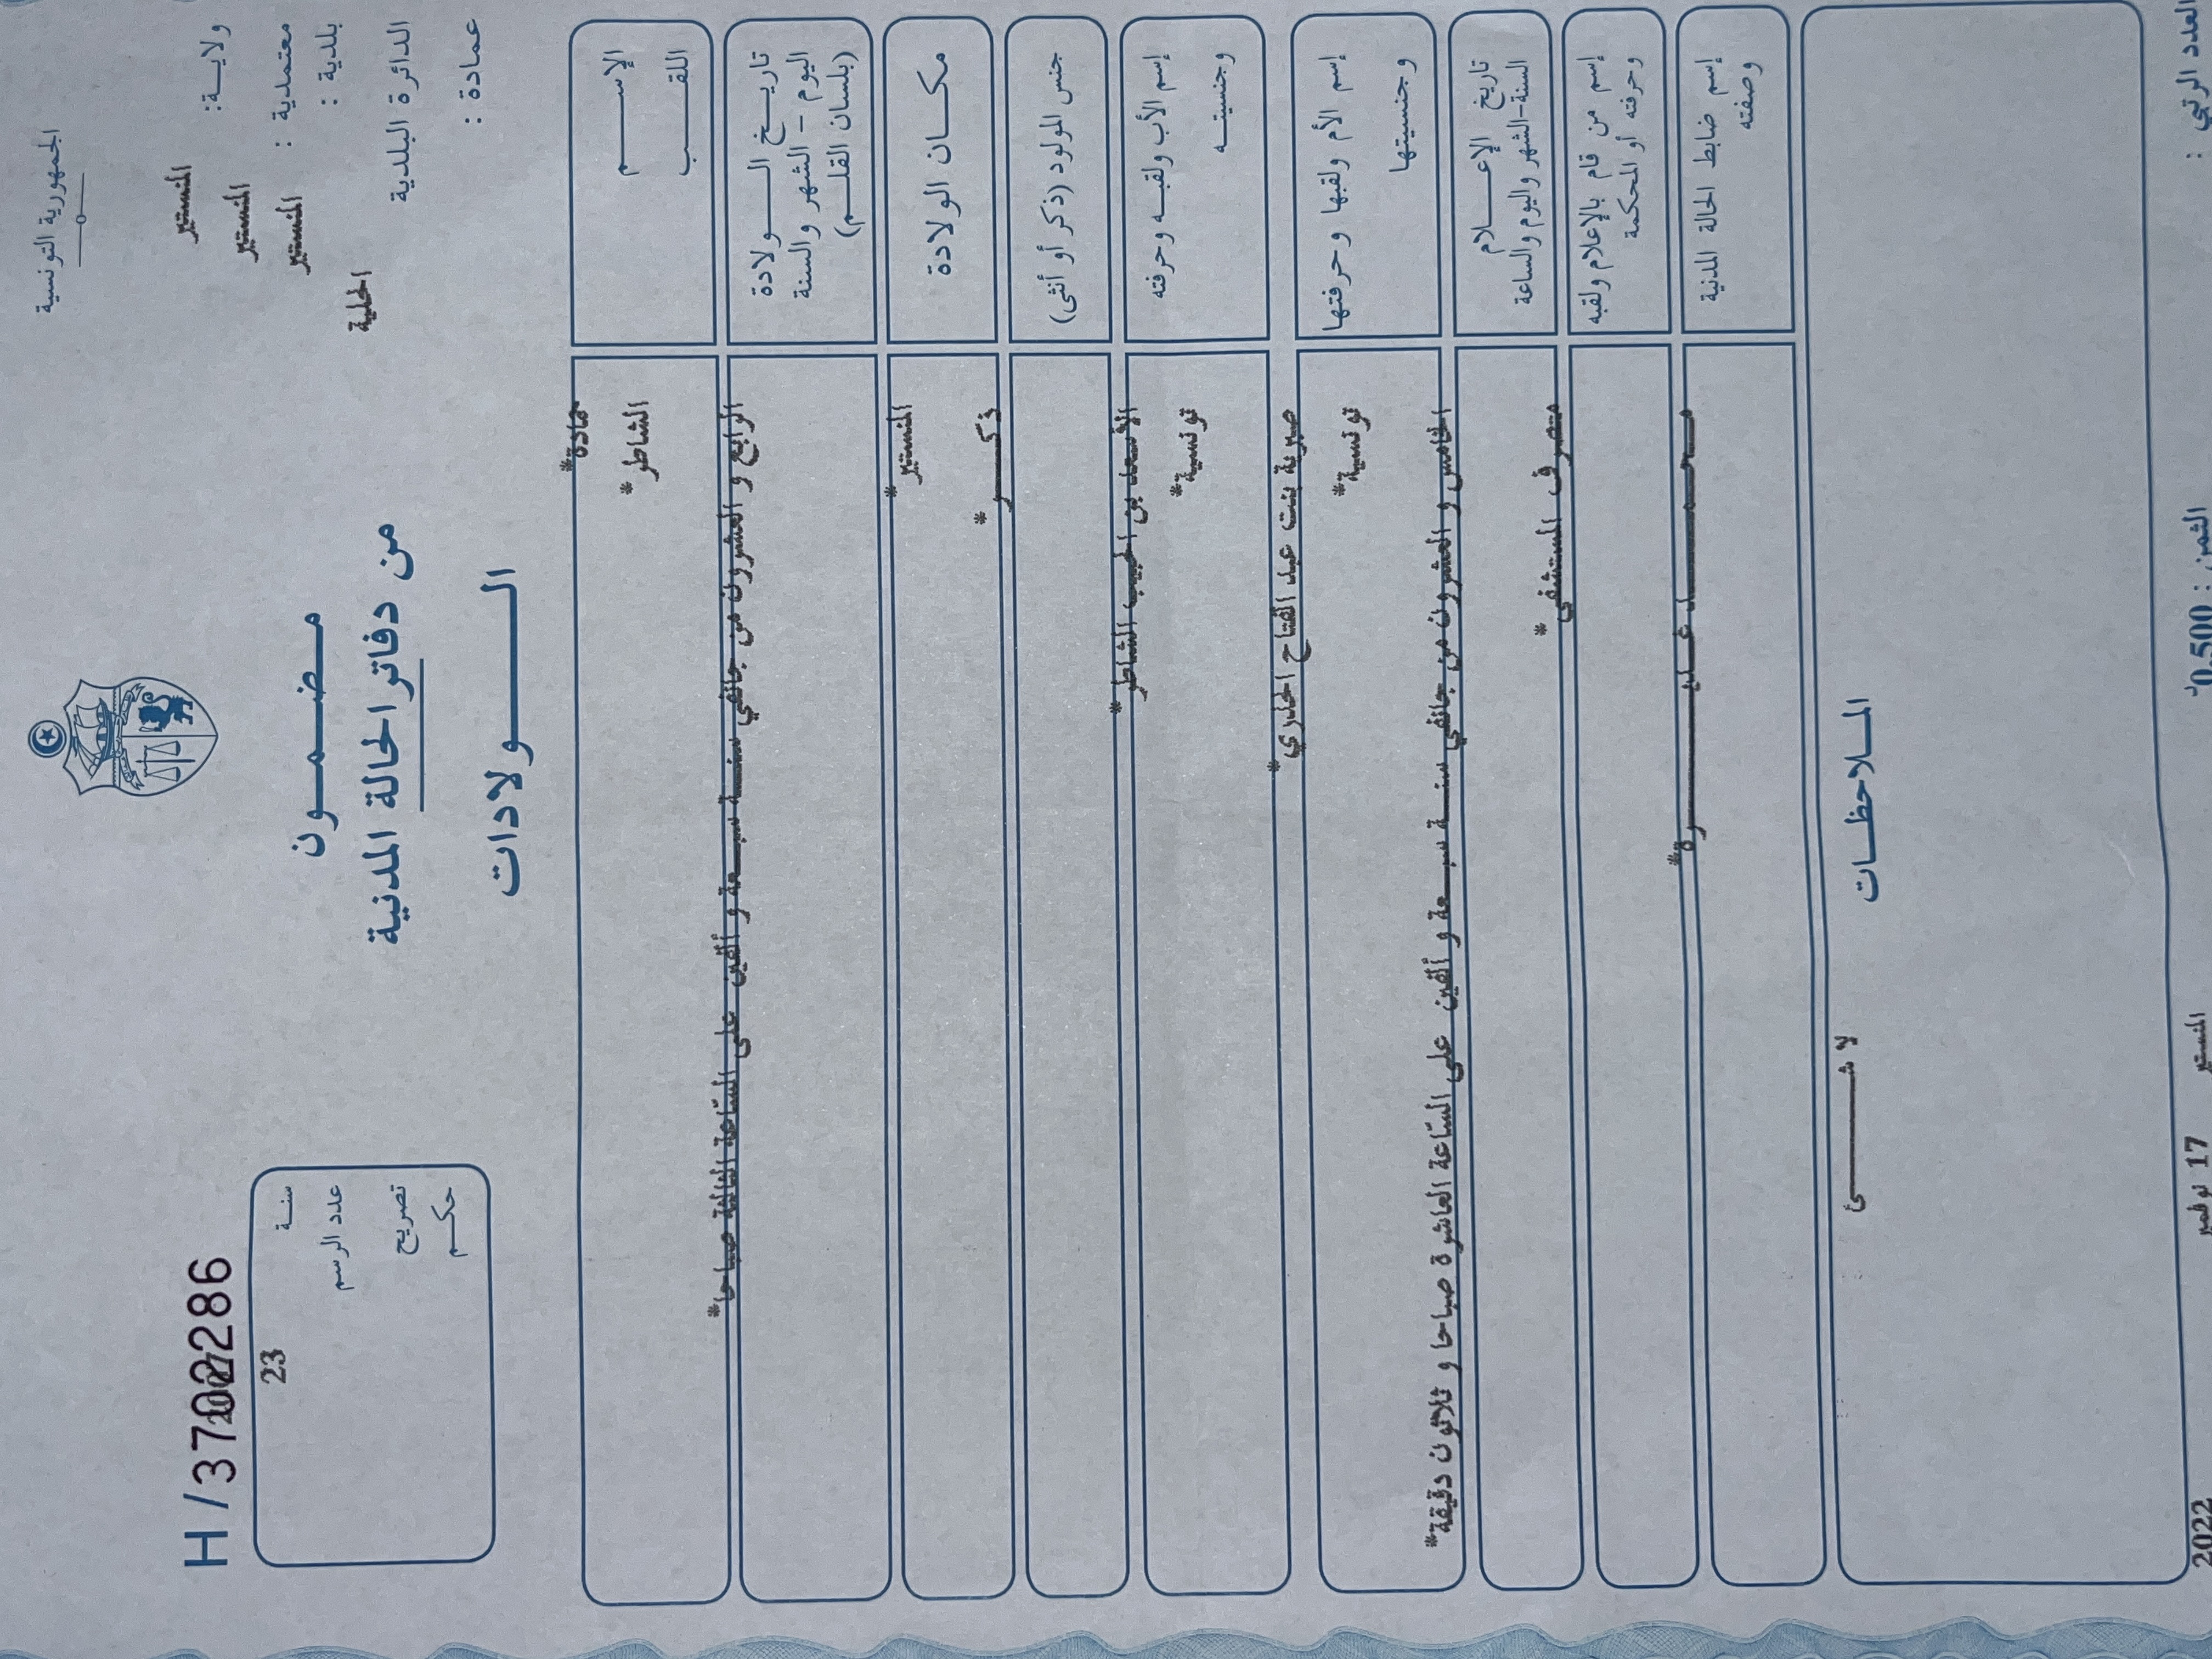 الجمهورية التونسية
ولايــة: المنستير
معتمدية : المنستير
بلدية : المنستير
الدائرة البلدية المحلية
عمادة :
H/37022286
سنـة
23
عدد الرسم
تصريح
حكـم
مـضـمـون
من دفاتر الحالة المدنية
الـولادات
الإسـم حمادة*
اللقـب الشاطر*
تاريـخ الـولادة
اليوم - الشهر والسنة
(بلسان القلـم)
الرابع و العشرون من جانفي سنـة سبـعة و ألفين على السّاعة الثالثة صباحا*
مكـان الولادة
المنستير*
جنس المولود (ذكر أو أنثى)
ذكـر*
إسم الأب ولقبـه وحرفته
وجنسيتـه
الأسعد بن الحبيب الشاطر*
تونسية*
إسم الأم ولقبها وحرفتها
وجنسيتها
صبرية بنت عبد الفتاح*
تونسية*
تاريخ الإعـلام
السنة-الشهر واليوم والساعة
الخامس و العشرون من جانفي سنـة سبـعة و ألفين على السّاعة العاشرة صباحا و ثلاثون دقيقة*
إسم من قام بالإعلام ولقبه
وحرفته أو المحكمة
متصرف المستشفى*
إسم ضابط الحالة المدنية
وصفته
محمـد
المـلاحظـات
لا شـئ
العدد الرتبي :
الثمن : 0,500د
المنستير 17 نوفمبر 2022